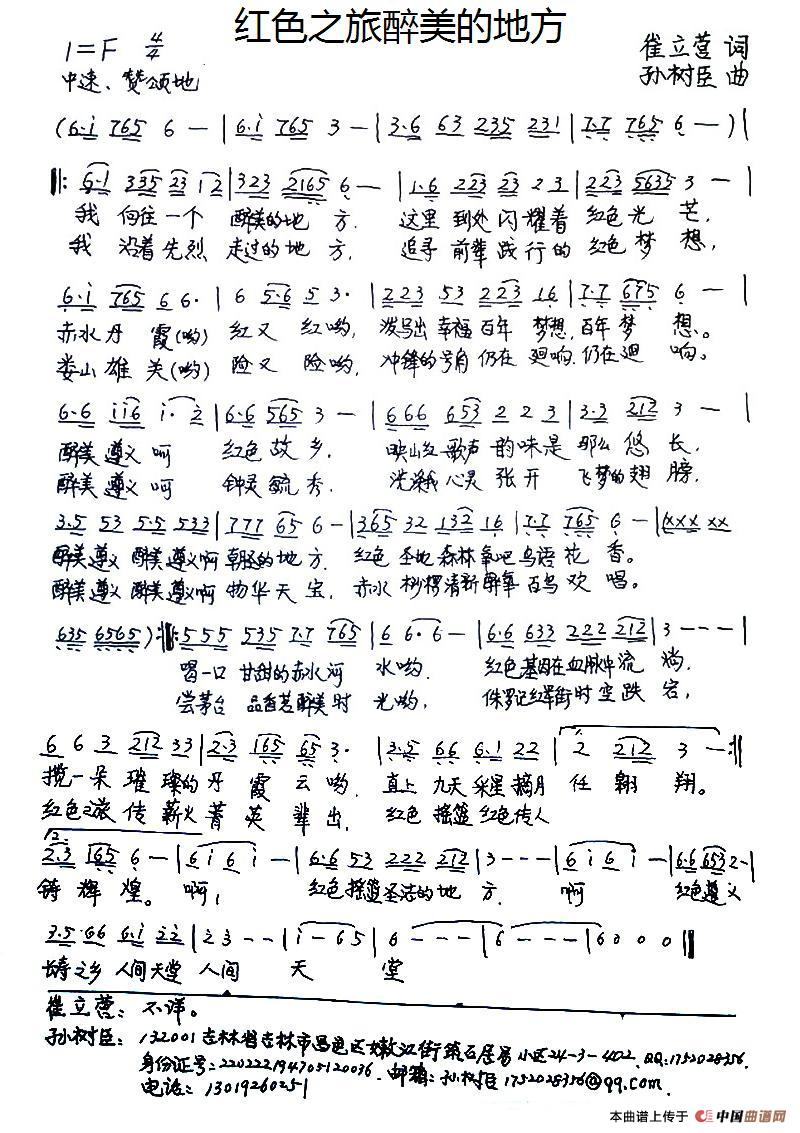 红色之旅醉美的地方
1=F 4/4
崔立营 词
中速、赞颂地
孙树臣 曲
(6·i 765 6 — | 6·i 765 3 — | 3·6 63 235 231 | 7·7 765 6 — ) |
‖: 6·1 335 23 12 | 323 2165 6 — | 1·6 223 23 23 | 223 5635 3 — |
我 向往一个 醉美的地 方. 这里 到处闪耀着 红色光 芒,
我 沿着先烈 走过的地 方. 追寻 前辈践行的 红色梦 想,
6·i 765 6 6· | 6 5·6 5 3· | 223 53 223 16 | 7·7 675 6 — |
赤水丹 霞(哟) 红又 红哟, 泼写出 幸福 百年 梦想,百年 梦 想。
娄山雄 关(哟) 险又 险哟, 冲锋的号角 仍在 迴响,仍在迴 响。
6·6 ii6 i· 2 | 6·6 565 3 — | 666 653 2 2 3 | 3·3 212 3 — |
醉美 遵义 呵 红色 故 乡. 映山红歌声 韵味是 那么 悠 长,
醉美 遵义 呵 钟灵 毓 秀. 洗涤我 心灵 张 开 飞梦的翅 膀,
3·5 53 5·5 533 | 777 65 6 — | 365 32 132 16 | 7·7 765 6 — | (xxx xx
醉美遵义 醉美遵义啊 朝圣的地 方. 红色 圣地 森林氧吧 鸟语 花 香。
醉美遵义 醉美遵义啊 物华天 宝, 赤水 桫椤清新醉氧 百鸟 欢 唱。
635 6565 ) :‖: 555 535 7·7 765 | 6 6·6 — | 6·6 633 222 212 | 3 — — — |
喝一口 甘甜的赤水河 水哟. 红色基因在血脉中流 淌,
尝茅台 品香茗醉美时 光哟, 侏罗记红军街时空跌 宕,
6 6 3 212 33 | 2·3 165 65 3· | 3·5 66 6·1 22 | 2 212 3 — :‖
揽一朵 璀 璨的丹 霞 云 哟. 直上 九天 采星 摘月 任 翱 翔。
红色之旅 传 薪火 菁 英 辈 出, 红色 摇篮 红色传人
2.
2·3 165 6 — | 6 i 6 i — | 6·6 53 222 212 | 3 — — — | 6 i 6 i — | 6·6 653 2 — |
铸 辉 煌。 啊, 红色摇篮圣洁的地 方. 啊 红色遵义
3·5·66 6·i 22 | 2 3 — — | i — 6 5 | 6 — — — | 6 — — — | 6 0 0 0 ‖
长寿之乡 人间天堂 人间 天 堂
崔立营: 不详。
孙树臣: 132001 吉林省吉林市昌邑区嫩江街筑石居易小区24-3-402. QQ:1752028356.
身份证号:220222194705120036. 邮箱:孙树臣1752028356@qq.com.
电话: 13019260251
本曲谱上传于 中国曲谱网